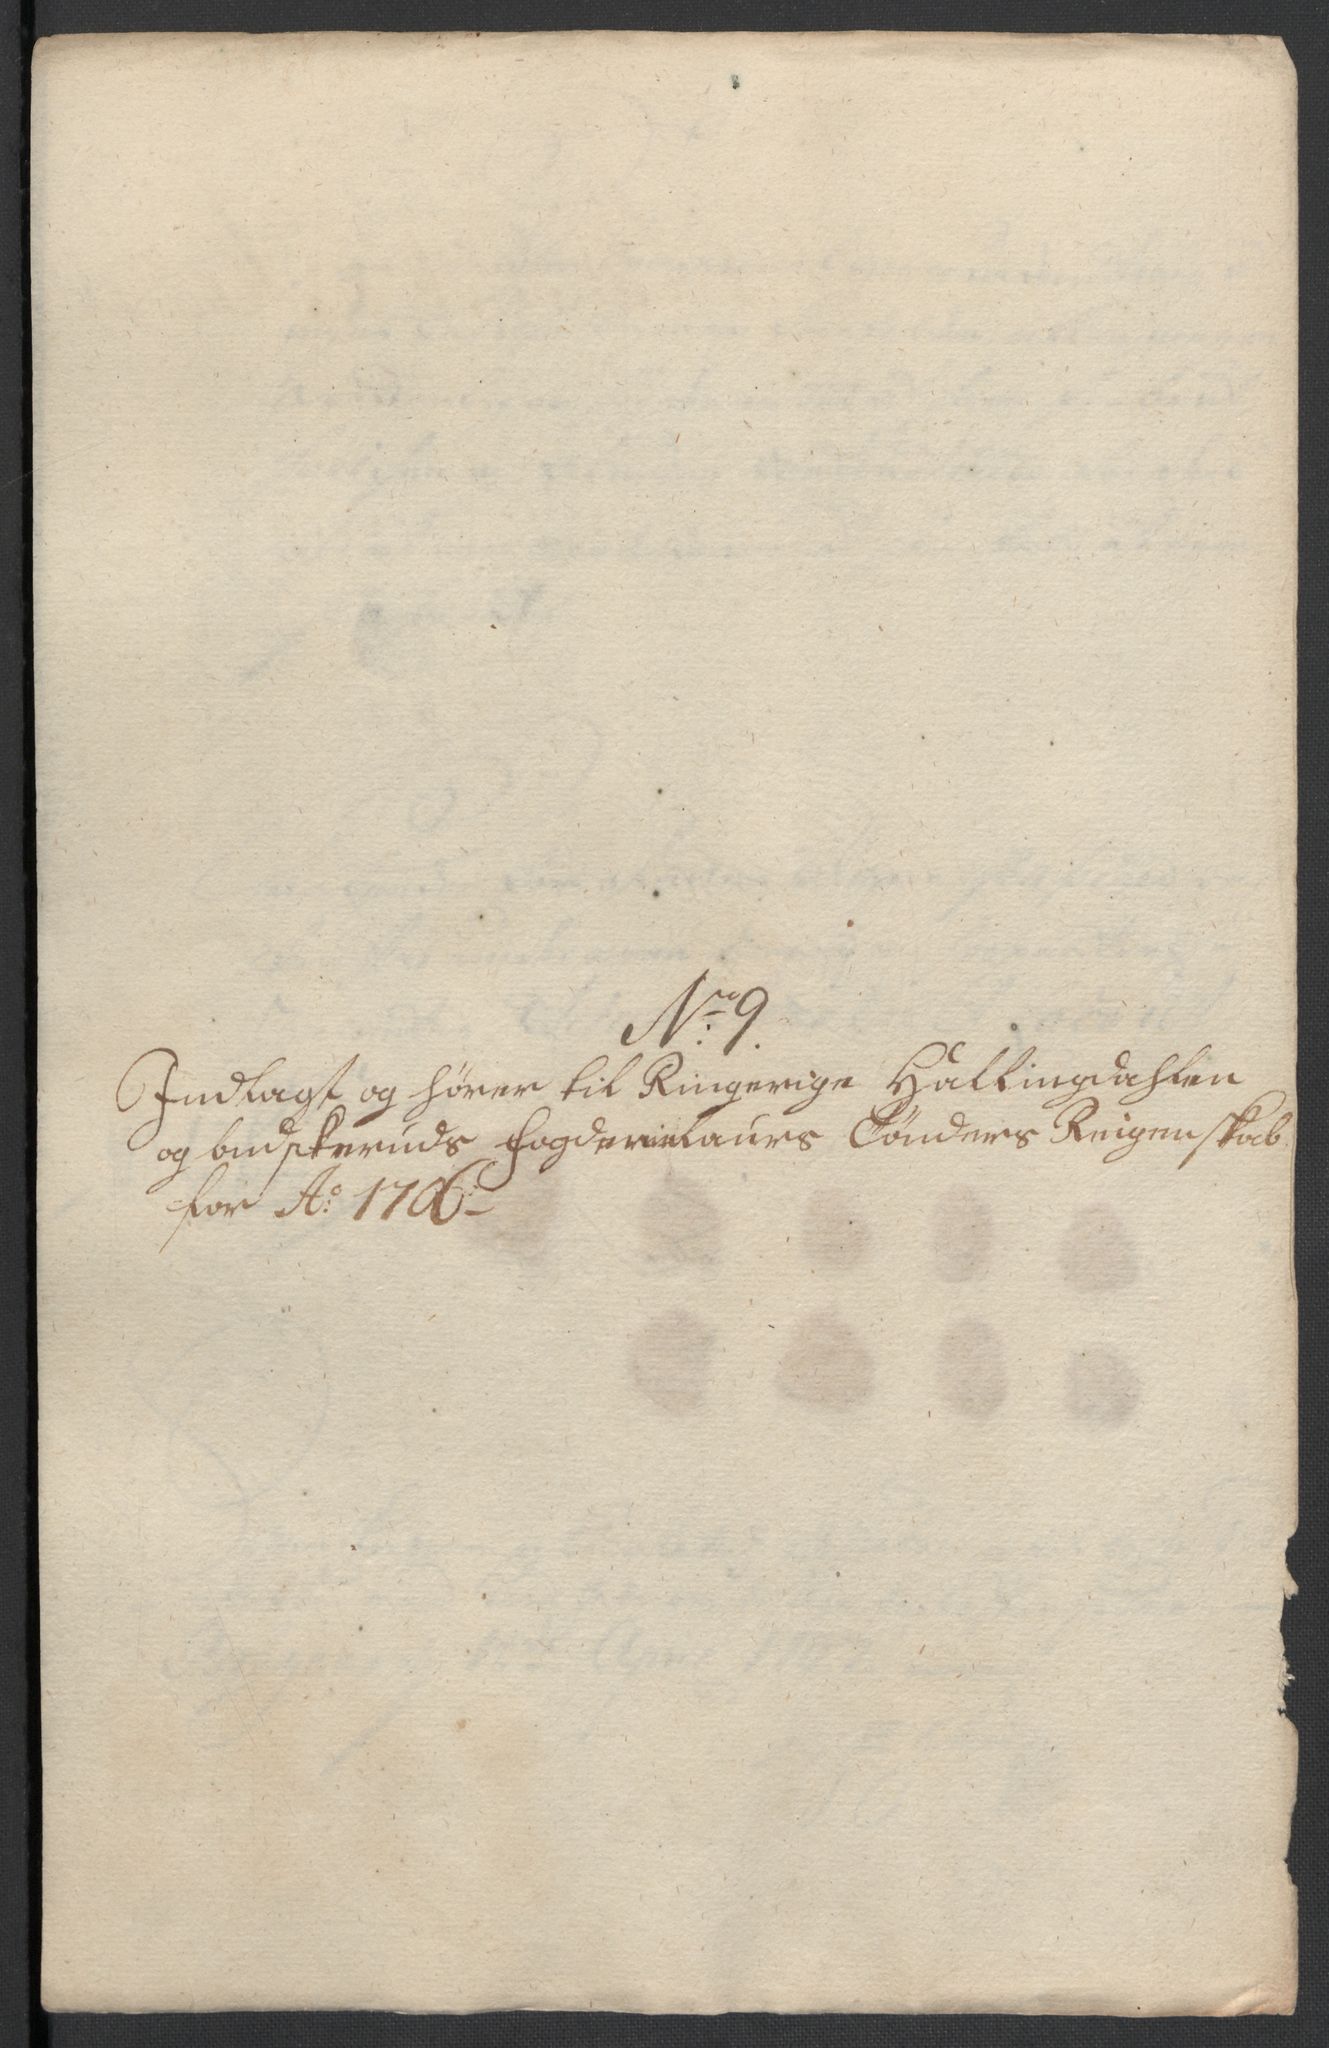 No: 9.
Indlagt og hører til Ringerige Hallingdahlen
og budskeruds fogderie Laurs Tønders Reigenskab
for Ao: 1706